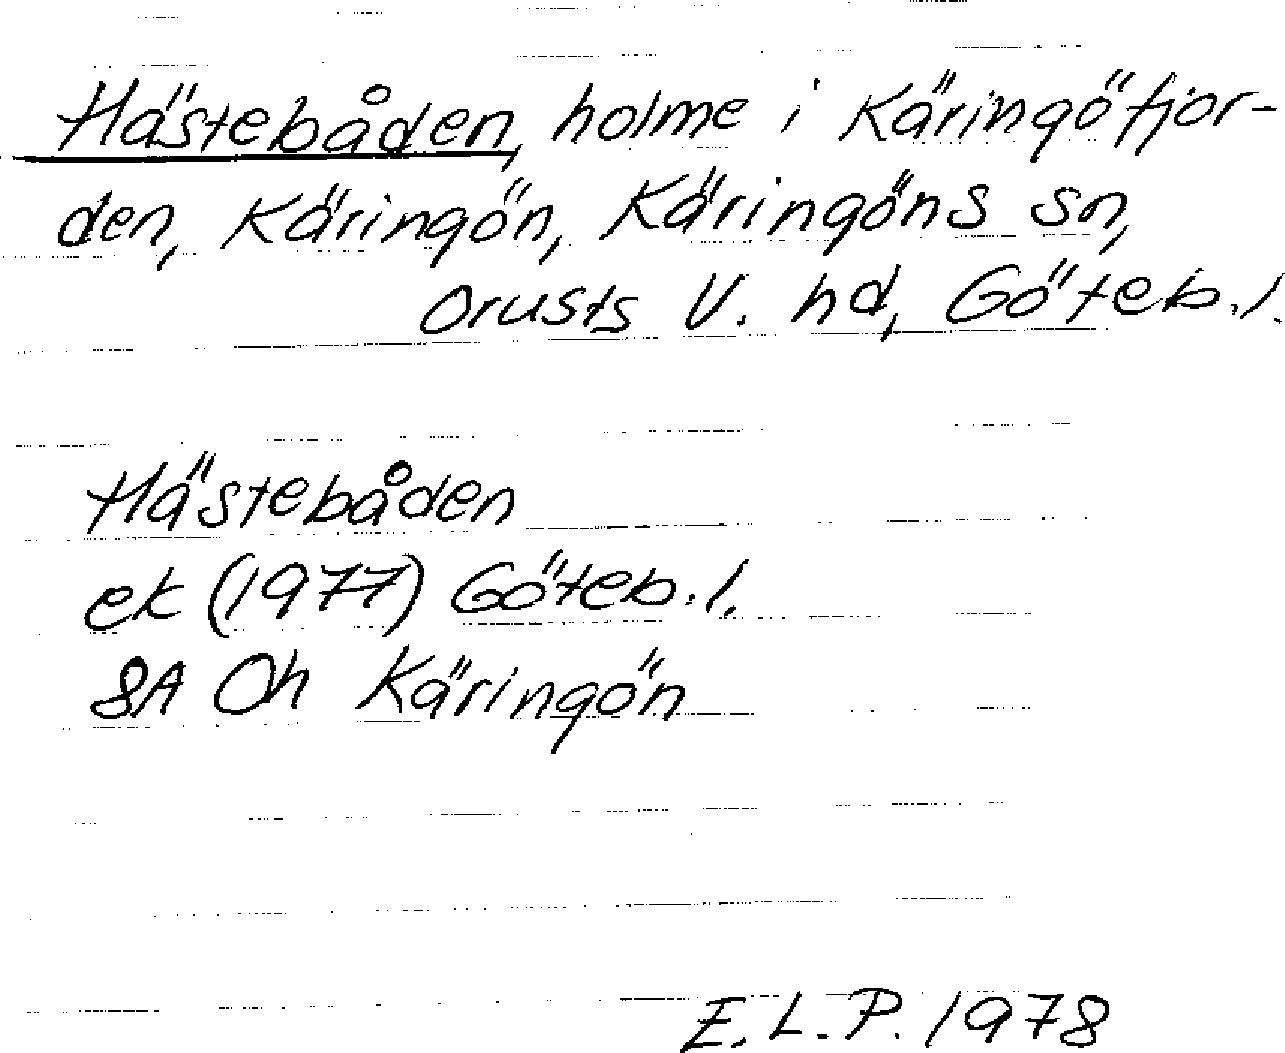 Hästebåden, holme i Käringöfjor-
den, Käringön, Käringöns sn,
Orusts V. hd, Göteb.l.
Hästebåden
ek (1977) Göteb.l.
8A Oh Käringön
E.L.P. 1978